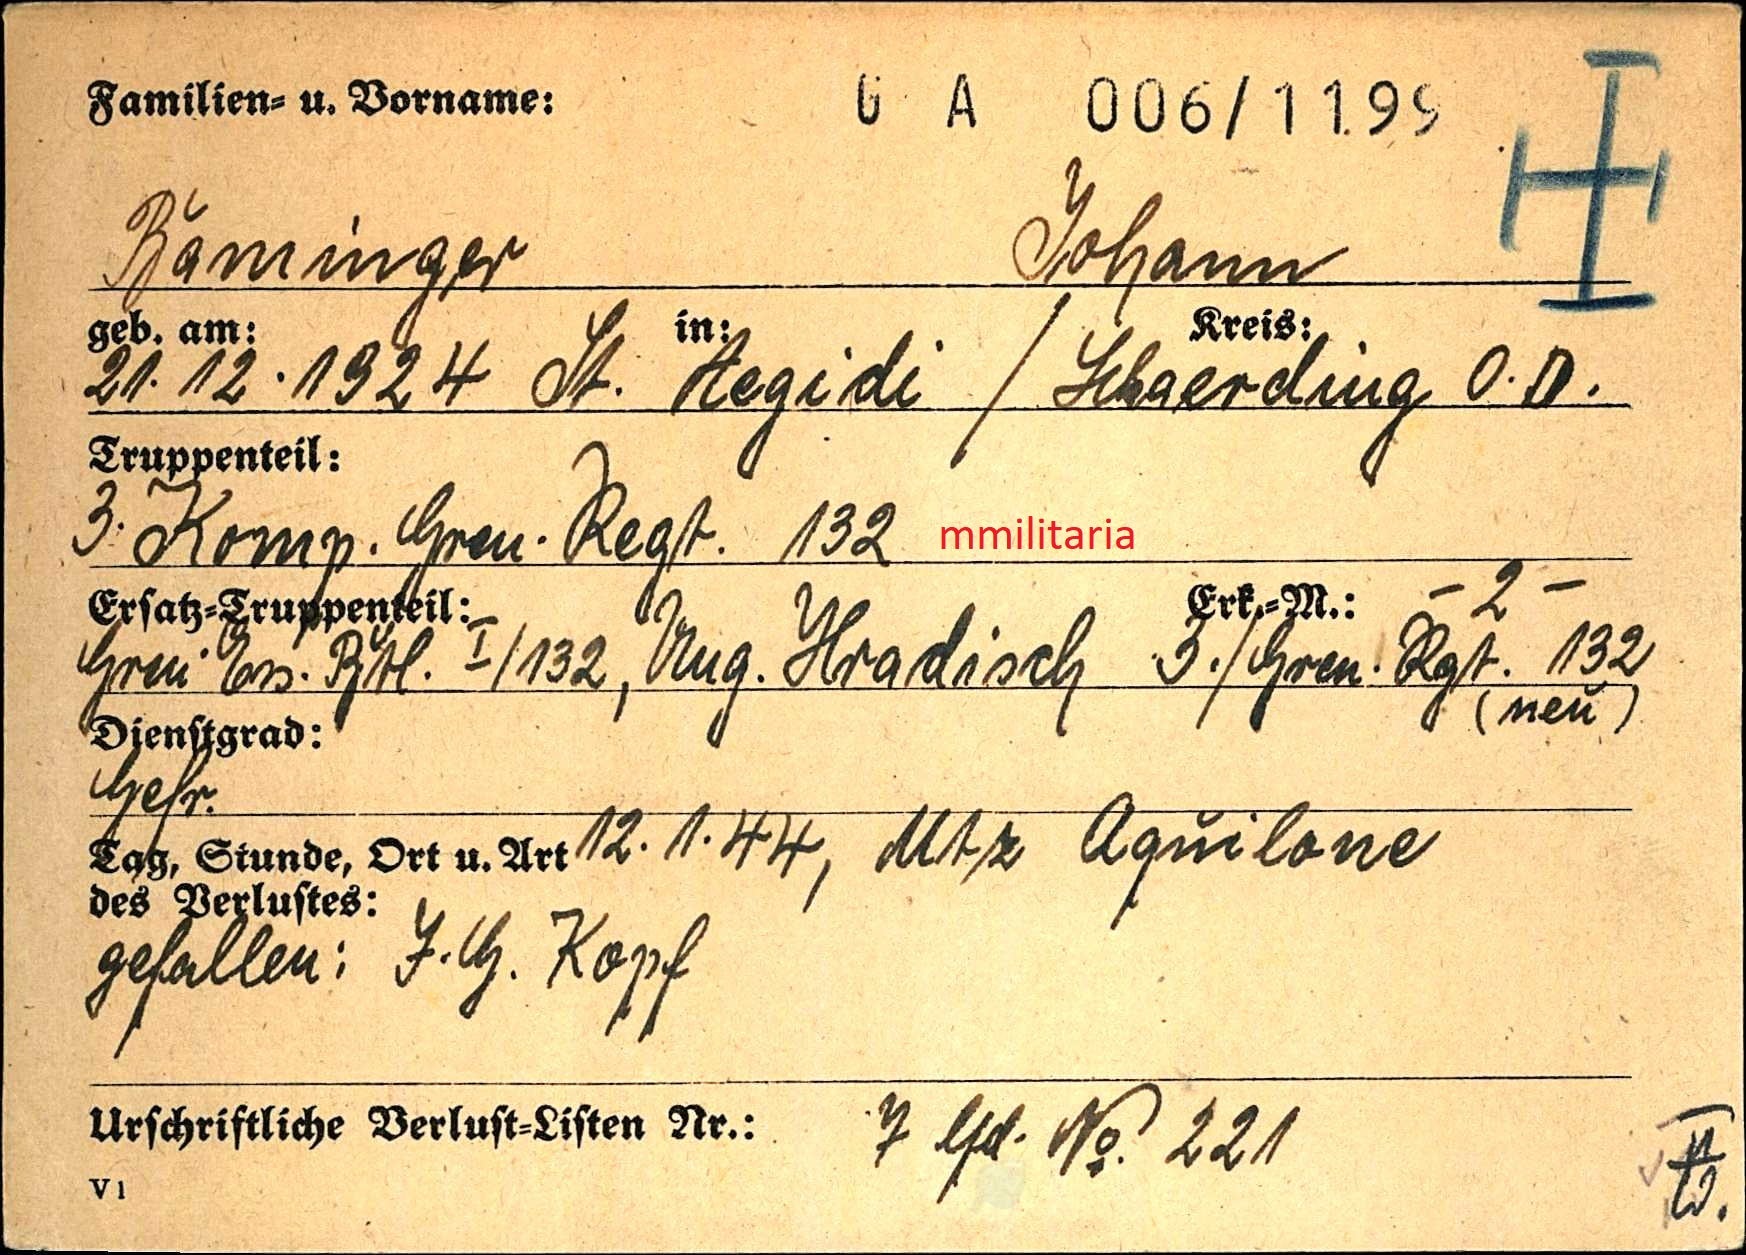 Familien- u. Vorname: G A 006/1199
Bäminger Johann
geb. am: in: Kreis:
21.12.1924 St. Aegidi / Schaerding O.D.
Truppenteil:
3. Komp. Gren. Regt. 132 mmilitaria
Ersatz-Truppenteil: Erk.-M.: - 2 -
Gren Ers. Btl. I/132, Ung. Hradisch 3./Gren. Rgt. 132
(neu)
Dienstgrad:
Gefr.
Tag, Stunde, Ort u. Art 12.1.44, Aquilone
des Verlustes:
gefallen: J.G. Kopf
Urschriftliche Verlust-Listen Nr.: 7 lfd. No. 221
V 1